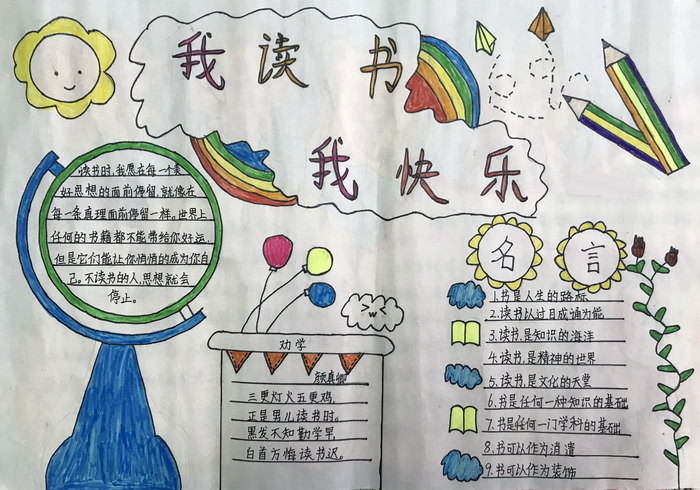 我读书
我快乐
读书时,我愿在每一个美
好思想的面前停留,就像在
每一条真理面前停留一样。世界上
任何的书籍都不能带给你好运,
但是它们能让你悄悄的成为你自
己。不读书的人,思想就会
停止。
劝学
颜真卿
三更灯火五更鸡,
正是男儿读书时。
黑发不知勤学早,
白首方悔读书迟。
名言
1.书是人生的路标
2.读书以过目成诵为能
3.读书,是知识的海洋
4.读书,是精神的世界
5.读书,是文化的天堂
6.书是任何一种知识的基础
7.书是任何一门学科的基础
8.书可以作为消遣
9.书可以作为装饰